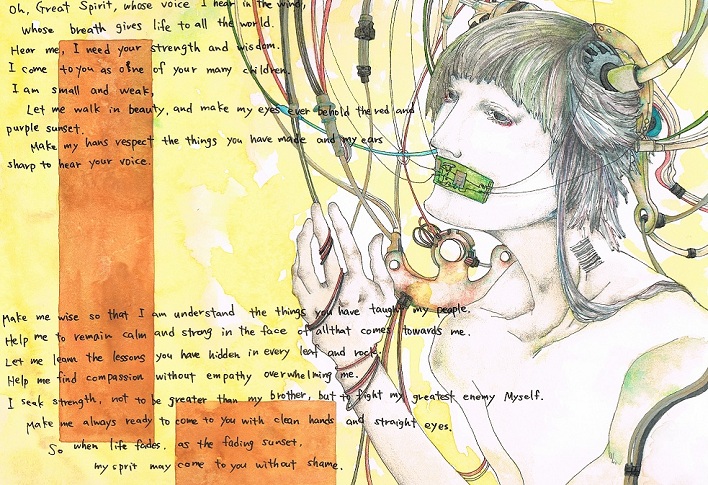 Oh, Great Spirit, whose voice I hear in the wind,
whose breath gives life to all the world.
Hear me, I need your strength and wisdom.
I come to you as one of your many children.
I am small and weak,
Let me walk in beauty, and make my eyes ever behold the red and
purple sunset.
Make my hans vespect the things you have made and my ears
sharp to hear your voice.
Make me wise so that I am understand the things you have taught my people.
Help me to remain calm and strong in the face of all that comes towards me.
Let me learn the lessons you have hidden in every leaf and rock.
Help me find compassion without empathy overwhelming me.
I seek strength, not to be greater than my brother, but to fight my greatest enemy Myself.
Make me always ready to come to you with clean hands and straight eyes.
So when life fades, as the fading sunset,
my sprit may come to you without shame.